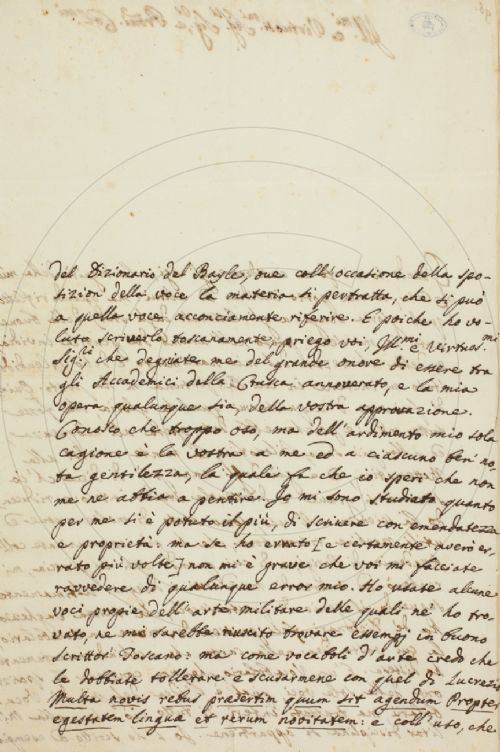 del Dizionario del Bayle, ove coll'occasione della spo-
sizioni della voce la materia si pertratta, che si può
a quella voce acconciamente riferire. E poichè ho vo-
luto scriverlo toscanamente, priego voi Ill.mi e Virtuos.mi
Sig.ri, che degniate me del grande onore di essere tra
gli Accademici della Crusca annoverato, e la mia
opera qualunque sia, della vostra approvazione.
Conosco che troppo oso, ma dell'ardimento mio sola
cagione è la vostra a me ed a ciascuno ben no-
ta gentilezza, la quale fa che io speri che non
me ne abbia a pentire. Io mi sono studiato quanto
per me si è potuto il più, di scrivere con emendatezza
e proprietà: ma se ho errato [e certamente averò er-
rato più volte] non mi è grave che voi mi facciate
ravvedere di qualunque error mio. Ho usate alcune
voci propie dell'arte militare delle quali nè ho tro-
vato, nè mi sarebbe riuscito trovare esempj in buono
scrittor Toscano: ma come vocaboli d'arte credo che
le dobbiate tollerare e scudarmene con quel di Lucrezio
Multa novis rebus praesertim quum sit agendum Propter
egestatem linguae et rerum novitatem: e coll'uso, che